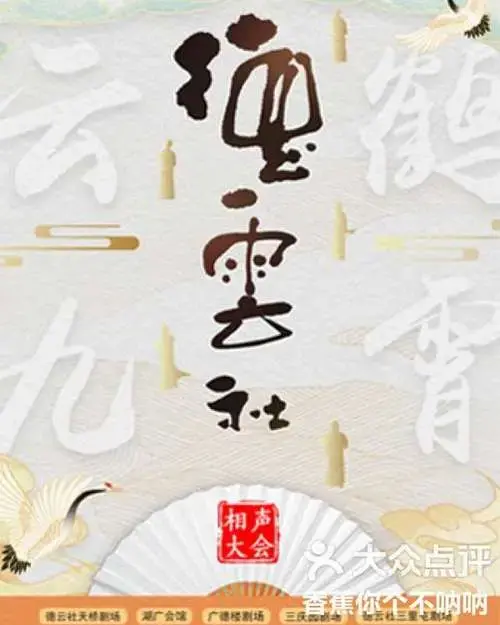 德雲社
云 鶴
九 霄
相声
大会
大众点评
香蕉你个不呐呐
德云社天桥剧场 湖广会馆 广德楼剧场 三庆园剧场 德云社三里屯剧场